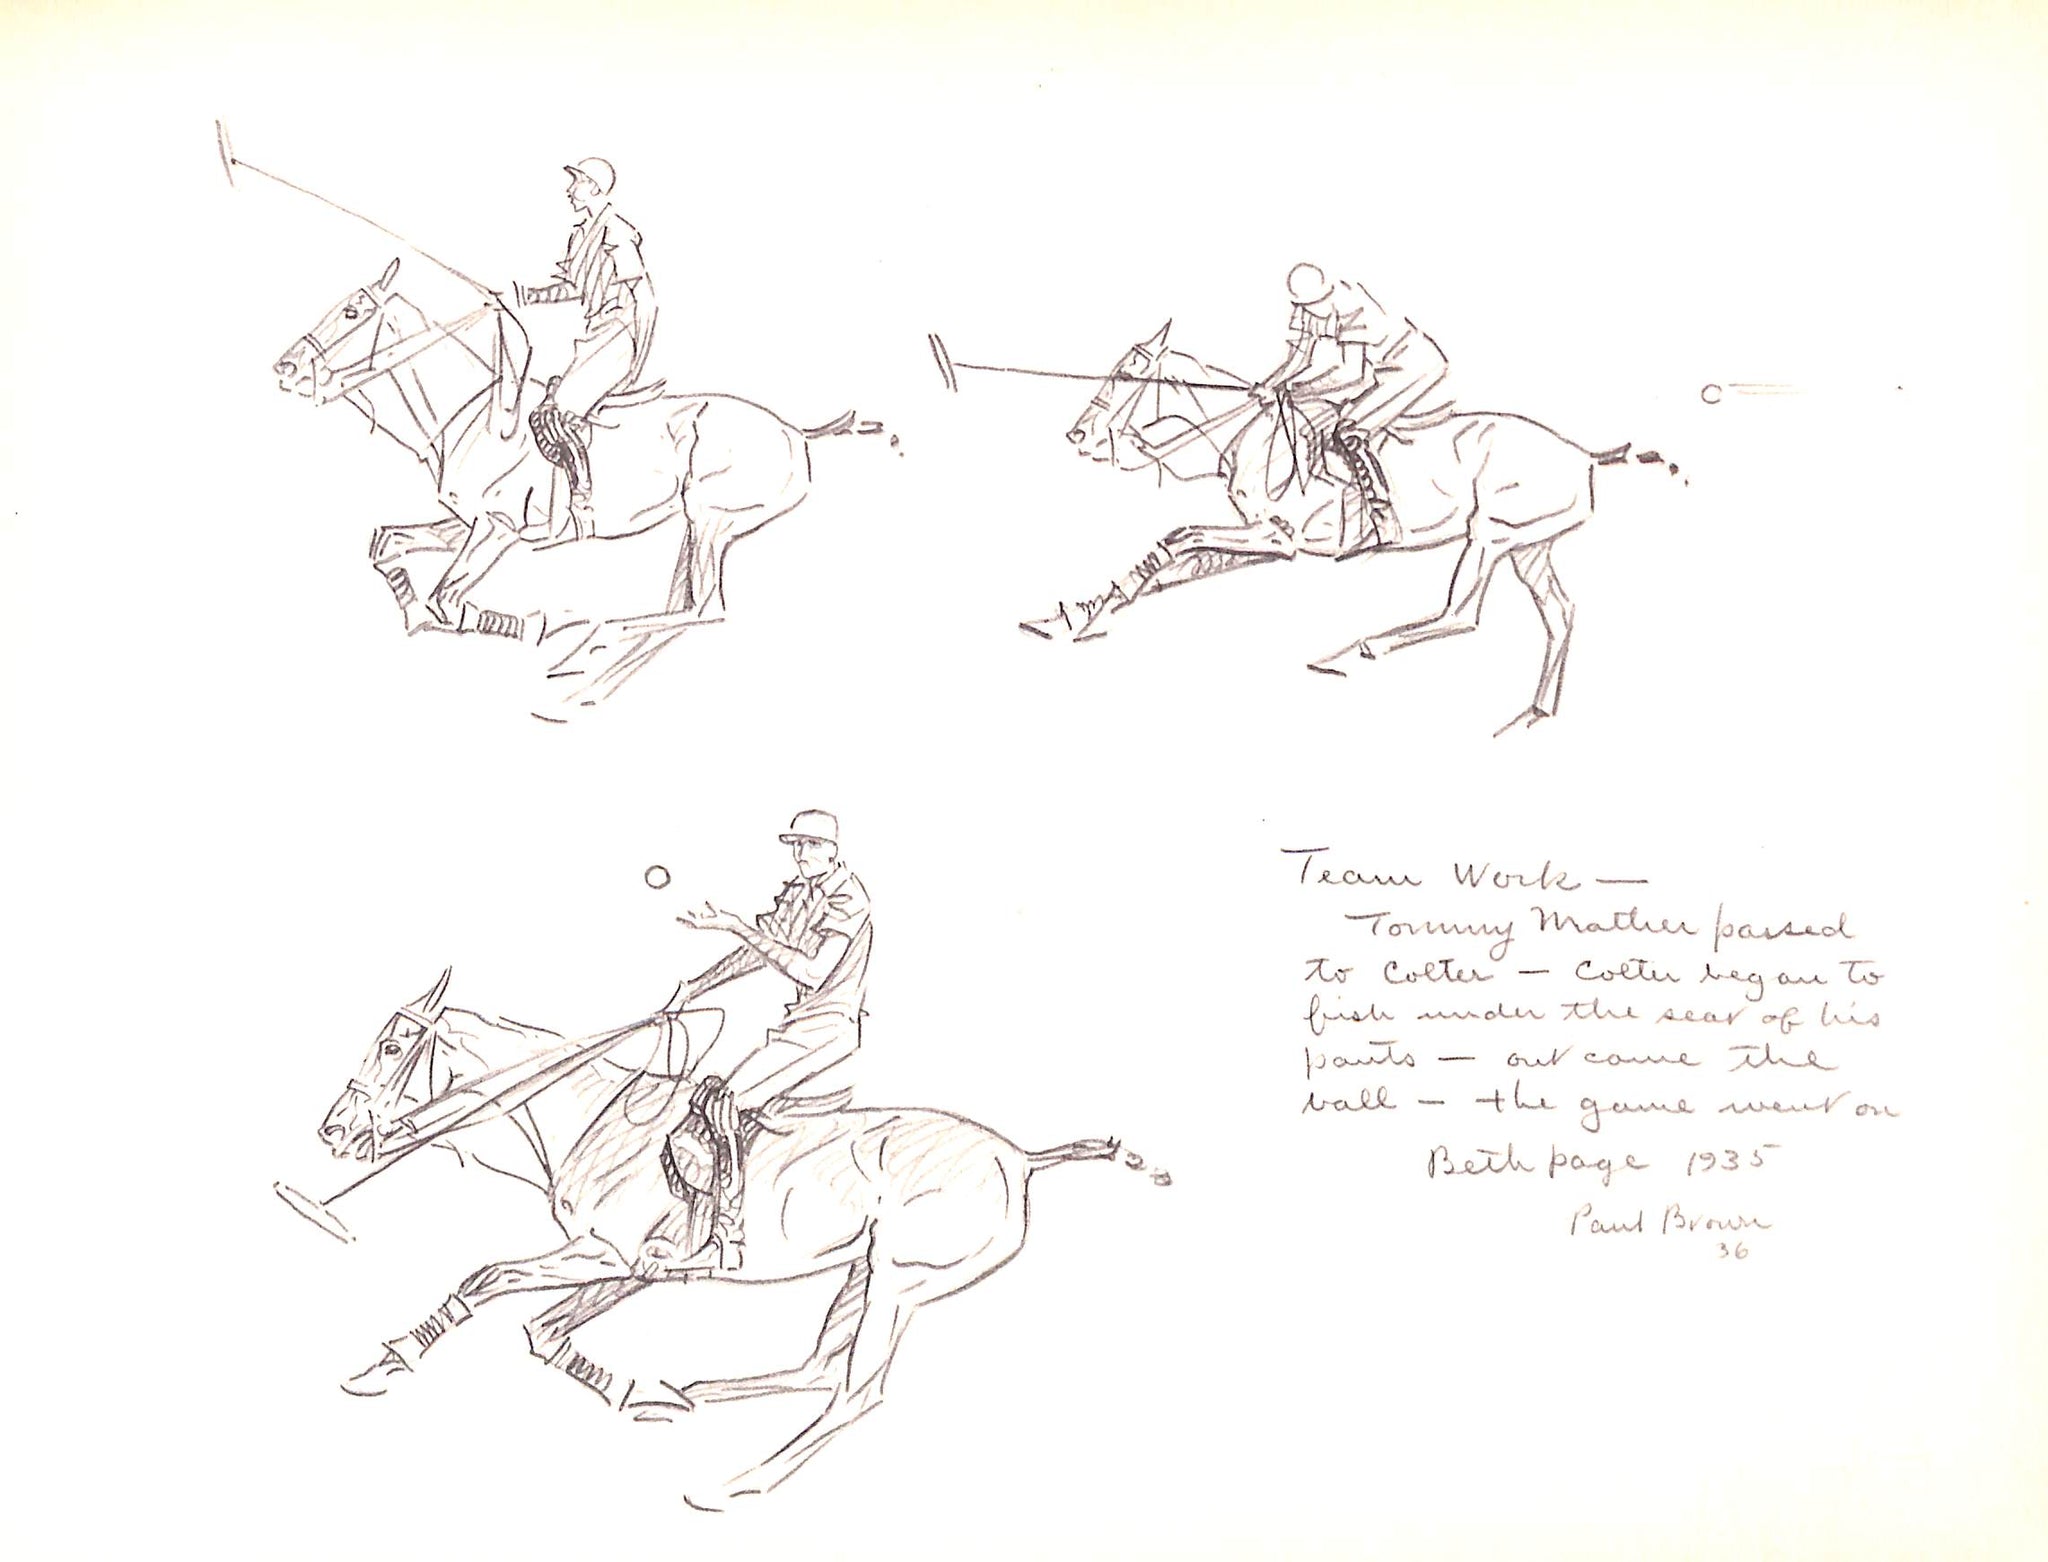 Team Work —
Tommy Mather passed
to Colter — Colter began to
fish under the seat of his
pants — out came the
ball — the game went on
Bethpage 1935
Paul Brown
36